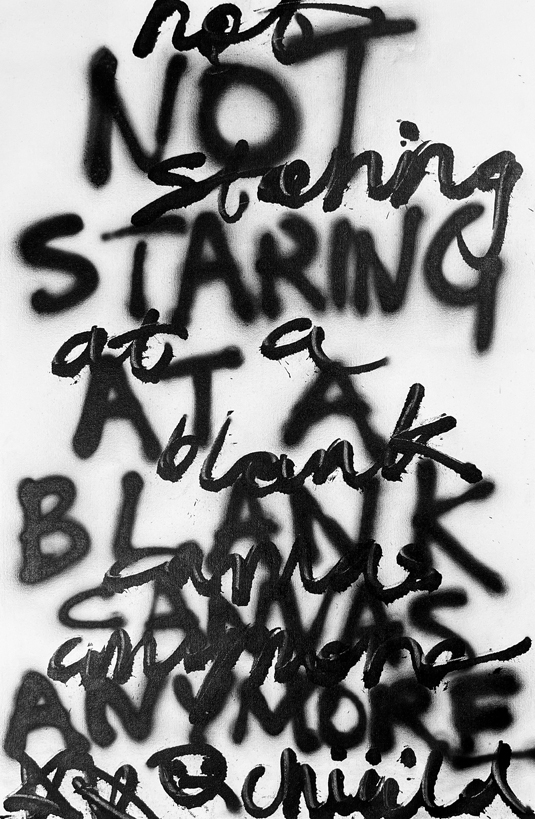 not
NOT
staring
STARING
at a
AT A
blank
BLANK
canvas
CANVAS
anymore
ANYMORE